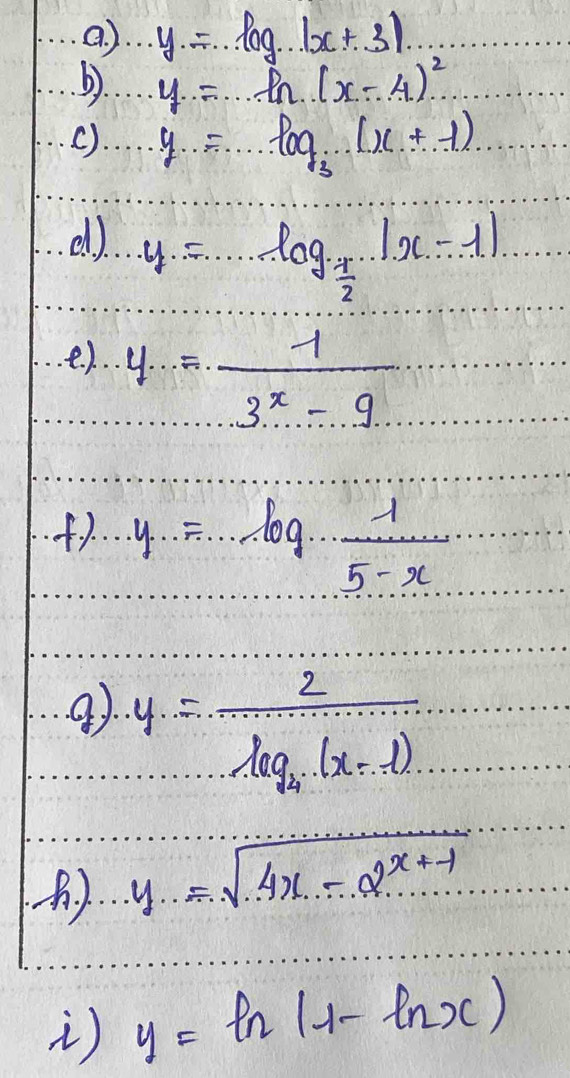 a) y = log |x + 3|
b) y = ln (x - 4)²
c) y = log₃ (x + 1)
d) y = log_{1/2} |x - 1|
e) y = 1/(3ˣ - 9)
f) y = log 1/(5 - x)
g) y = 2/(log₄ (x - 1))
h) y = √(4x - 2ˣ⁺¹)
i) y = ln (1 - ln x)